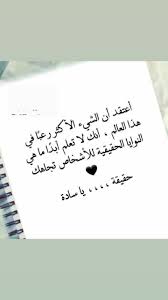 أعتقد أن الشيء الأكثر رعبًا في
هذا العالم ، أنك لا تعلم أبدًا ما هي
النوايا الحقيقية للأشخاص تجاهك
🖤
حقيقة ،،،، يا سادة